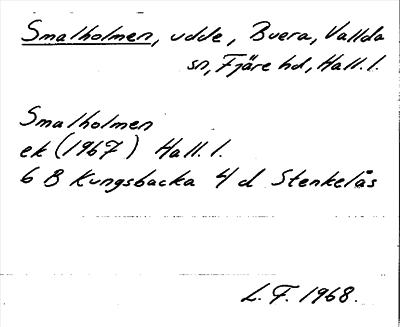 Smalholmen, udde, Buera, Vallda
sn, Fjäre hd, Hall. l.
Smalholmen
ek (1967) Hall. l.
6 B Kungsbacka 4 d Stenkelås
L. F. 1968.